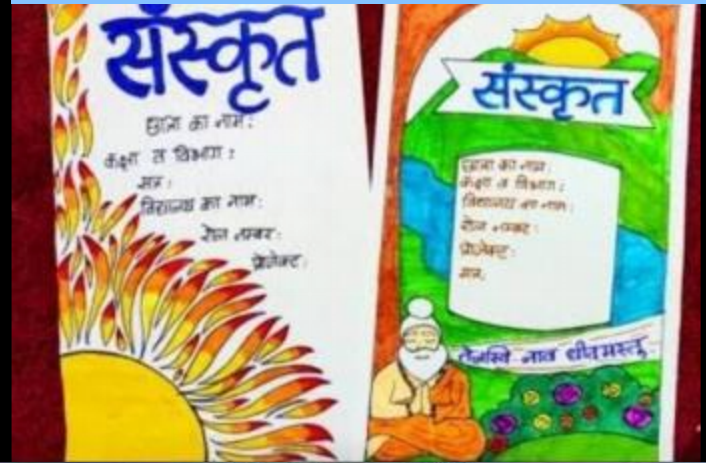 संस्कृत
छात्रा का नाम :
कक्षा व विभाग :
सत्र :
विद्यालय का नाम :
रोल नम्बर :
प्रोजेक्ट :
संस्कृत
छात्रा का नाम :
कक्षा व विभाग :
विद्यालय का नाम :
रोल नम्बर :
प्रोजेक्ट :
सत्र :
तेजस्वि नाव धीतमस्तु